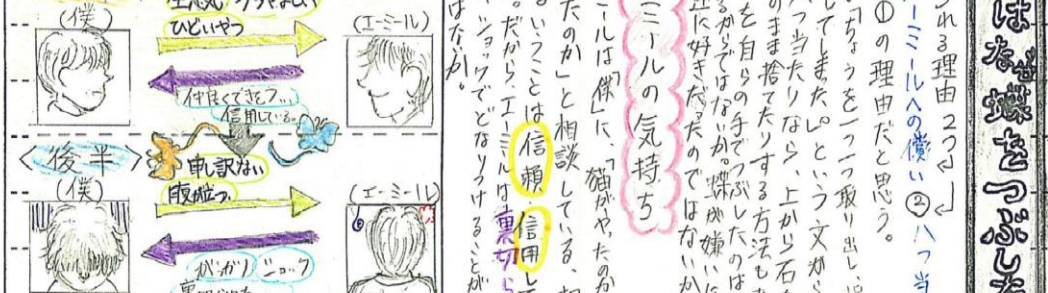 はなぜ蝶をつぶした
れる理由 2つ
エーミールへの償い ② 八つ当
①の理由だと思う。
「ちょうを一つ一つ取り出し、
してしまった。」という文から
八つ当たりなら、上から石
のまま捨てたりする方法も
を自らの手でつぶしたのは
るからではないか。蝶が嫌いに
に好きだったのではないか
ミールの気持ち
ールは「僕」に、「猫がやったのか
たのか」と相談している、
いうことは信頼・信用して
。だから、エーミールは裏切ら
ショックでどなりつけることが
はないか。
(僕)
ひどいやつ
(エーミール)
仲良くできそう…
信用している。
<後半>
申し訳ない
腹が立つ。
(僕)
(エーミール)
ガッカリ ショック